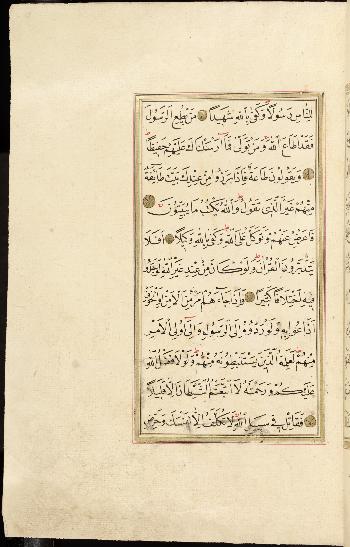 لِلنَّاسِ رَسُولًا وَكَفَى بِاللَّهِ شَهِيدًا مَنْ يُطِعِ الرَّسُولَ
فَقَدْ أَطَاعَ اللَّهَ وَمَنْ تَوَلَّى فَمَا أَرْسَلْنَاكَ عَلَيْهِمْ حَفِيظًا
وَيَقُولُونَ طَاعَةٌ فَإِذَا بَرَزُوا مِنْ عِنْدِكَ بَيَّتَ طَائِفَةٌ
مِنْهُمْ غَيْرَ الَّذِي تَقُولُ وَاللَّهُ يَكْتُبُ مَا يُبَيِّتُونَ
فَأَعْرِضْ عَنْهُمْ وَتَوَكَّلْ عَلَى اللَّهِ وَكَفَى بِاللَّهِ وَكِيلًا أَفَلَا
يَتَدَبَّرُونَ الْقُرْآنَ وَلَوْ كَانَ مِنْ عِنْدِ غَيْرِ اللَّهِ لَوَجَدُوا
فِيهِ اخْتِلَافًا كَثِيرًا وَإِذَا جَاءَهُمْ أَمْرٌ مِنَ الْأَمْنِ أَوِ الْخَوْفِ
أَذَاعُوا بِهِ وَلَوْ رَدُّوهُ إِلَى الرَّسُولِ وَإِلَى أُولِي الْأَمْرِ
مِنْهُمْ لَعَلِمَهُ الَّذِينَ يَسْتَنْبِطُونَهُ مِنْهُمْ وَلَوْلَا فَضْلُ اللَّهِ
عَلَيْكُمْ وَرَحْمَتُهُ لَاتَّبَعْتُمُ الشَّيْطَانَ إِلَّا قَلِيلًا
فَقَاتِلْ فِي سَبِيلِ اللَّهِ لَا تُكَلَّفُ إِلَّا نَفْسَكَ وَحَرِّضِ